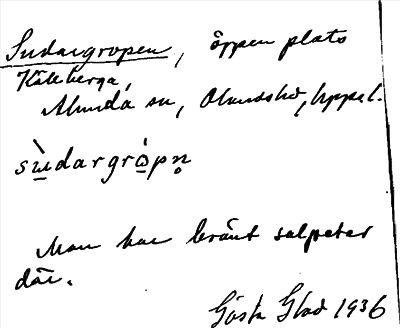 Sudargropen, öppen plats
Källberga,
Alunda sn, Olandshd, Uppl.
sùdargròpn̥
Man har bränt salpeter
där.
Gösta Glad 1936